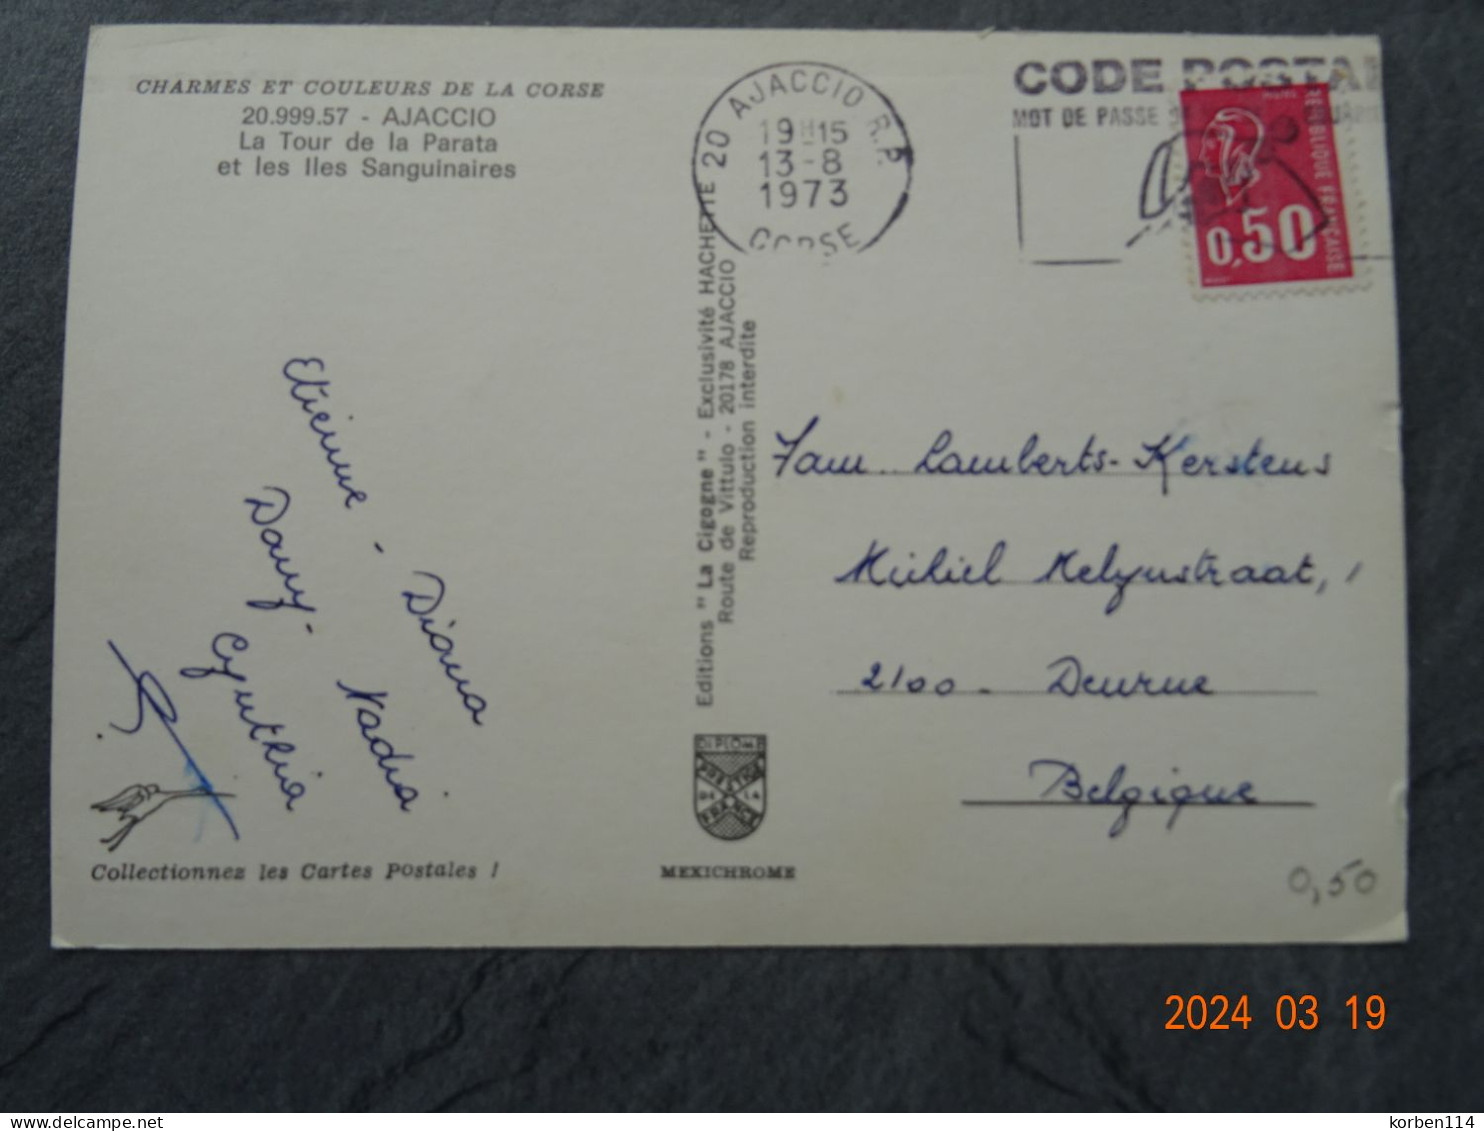 CHARMES ET COULEURS DE LA CORSE
20.999.57 - AJACCIO
La Tour de la Parata
et les Iles Sanguinaires
20 AJACCIO R.P.
19H15
13-8
1973
CORSE
CODE POSTAL
MOT DE PASSE
REPUBLIQUE FRANÇAISE
0,50
Etienne - Diana
Dany - Nadia
Cynthia
Editions "La Cigogne" - Exclusivité HACHETTE
Route de Vittulo - 20178 AJACCIO
Reproduction interdite
Fam. Lamberts-Kerstens
Michiel Melynstraat, 1
2100 - Deurne
Belgique
DIPLOME
PRESTIGE
DE LA
FRANCE
Collectionnez les Cartes Postales !
MEXICHROME
0,50
2024 03 19
korben114